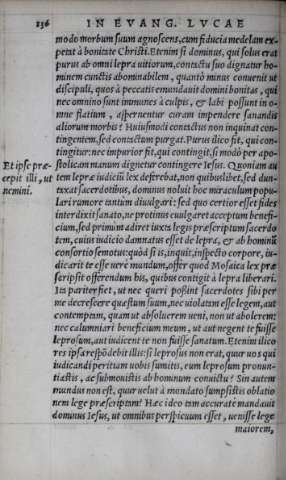 136 IN EVANG. LVCAE
modo morbum suum agnoscens, cum fiducia medelam ex-
petat à bonitate Christi. Etenim si dominus, qui solus erat
purus ab omni lepra uitiorum, contactu suo dignatur ho-
minem cunctis abominabilem, quantò minus conuenit ut
discipuli, quos à peccatis emundauit domini bonitas, qui
nec omnino sunt immunes à culpis, & labi possunt in o-
mne flatium, aspernentur curam impendere sanandis
aliorum morbis? Huiusmodi contactus non inquinat con-
tingentem, sed contactum purgat. Purus ilico fit, qui con-
tingitur: nec impurior fit, qui contingit, si modò per apo-
stolicam manum dignetur contingere Iesus. Quoniam au
Et ipse præ-
cepit illi, ut
nemini.
tem lepræ iudiciũ lex deferebat, non quibuslibet, sed dun-
taxat sacerdotibus, dominus noluit hoc miraculum popu-
lari rumore tantùm diuulgari: sed quo certior esset fides
interdixit sanato, ne protinus euulgaret acceptum benefi-
cium, sed primùm adiret iuxta legis præscriptum sacerdo
tem, cuius iudicio damnatus esset de lepra, & ab hominũ
consortio semotus: quò si is, inquit, inspecto corpore, iu-
dicarit te esse uerè mundum, offer quod Mosaica lex præ
scripsit offerendum his, quibus contigit à lepra liberari.
Ita pariter fiet, ut nec queri possint sacerdotes sibi per
me decrescere quæstum suum, nec uiolatam esse legem, aut
contemptam, quam ut absoluerem ueni, non ut abolerem:
nec calumniari beneficium meum, ut aut negent te fuisse
leprosum, aut iudicent te non fuisse sanatum. Etenim ilico
res ipsa respõdebit illis: si leprosus non erat, quur uos qui
iudicandi peritiam uobis sumitis, eum leprosum pronun-
tiastis, ac submouistis ab hominum conuictu? Sin autem
mundus non est, quur uelut à mundato sumpsistis oblatio
nem lege præscriptam? Hæc ideo tam accuratè mandauit
dominus Iesus, ut omnibus perspicuum esset, uenisse lege
maiorem,